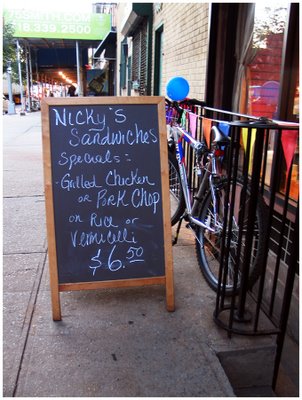 718.339.2500
Nicky's
Sandwiches
Specials:
- Grilled Chicken
or Pork Chop
on Rice or
Vermicelli
$6.50